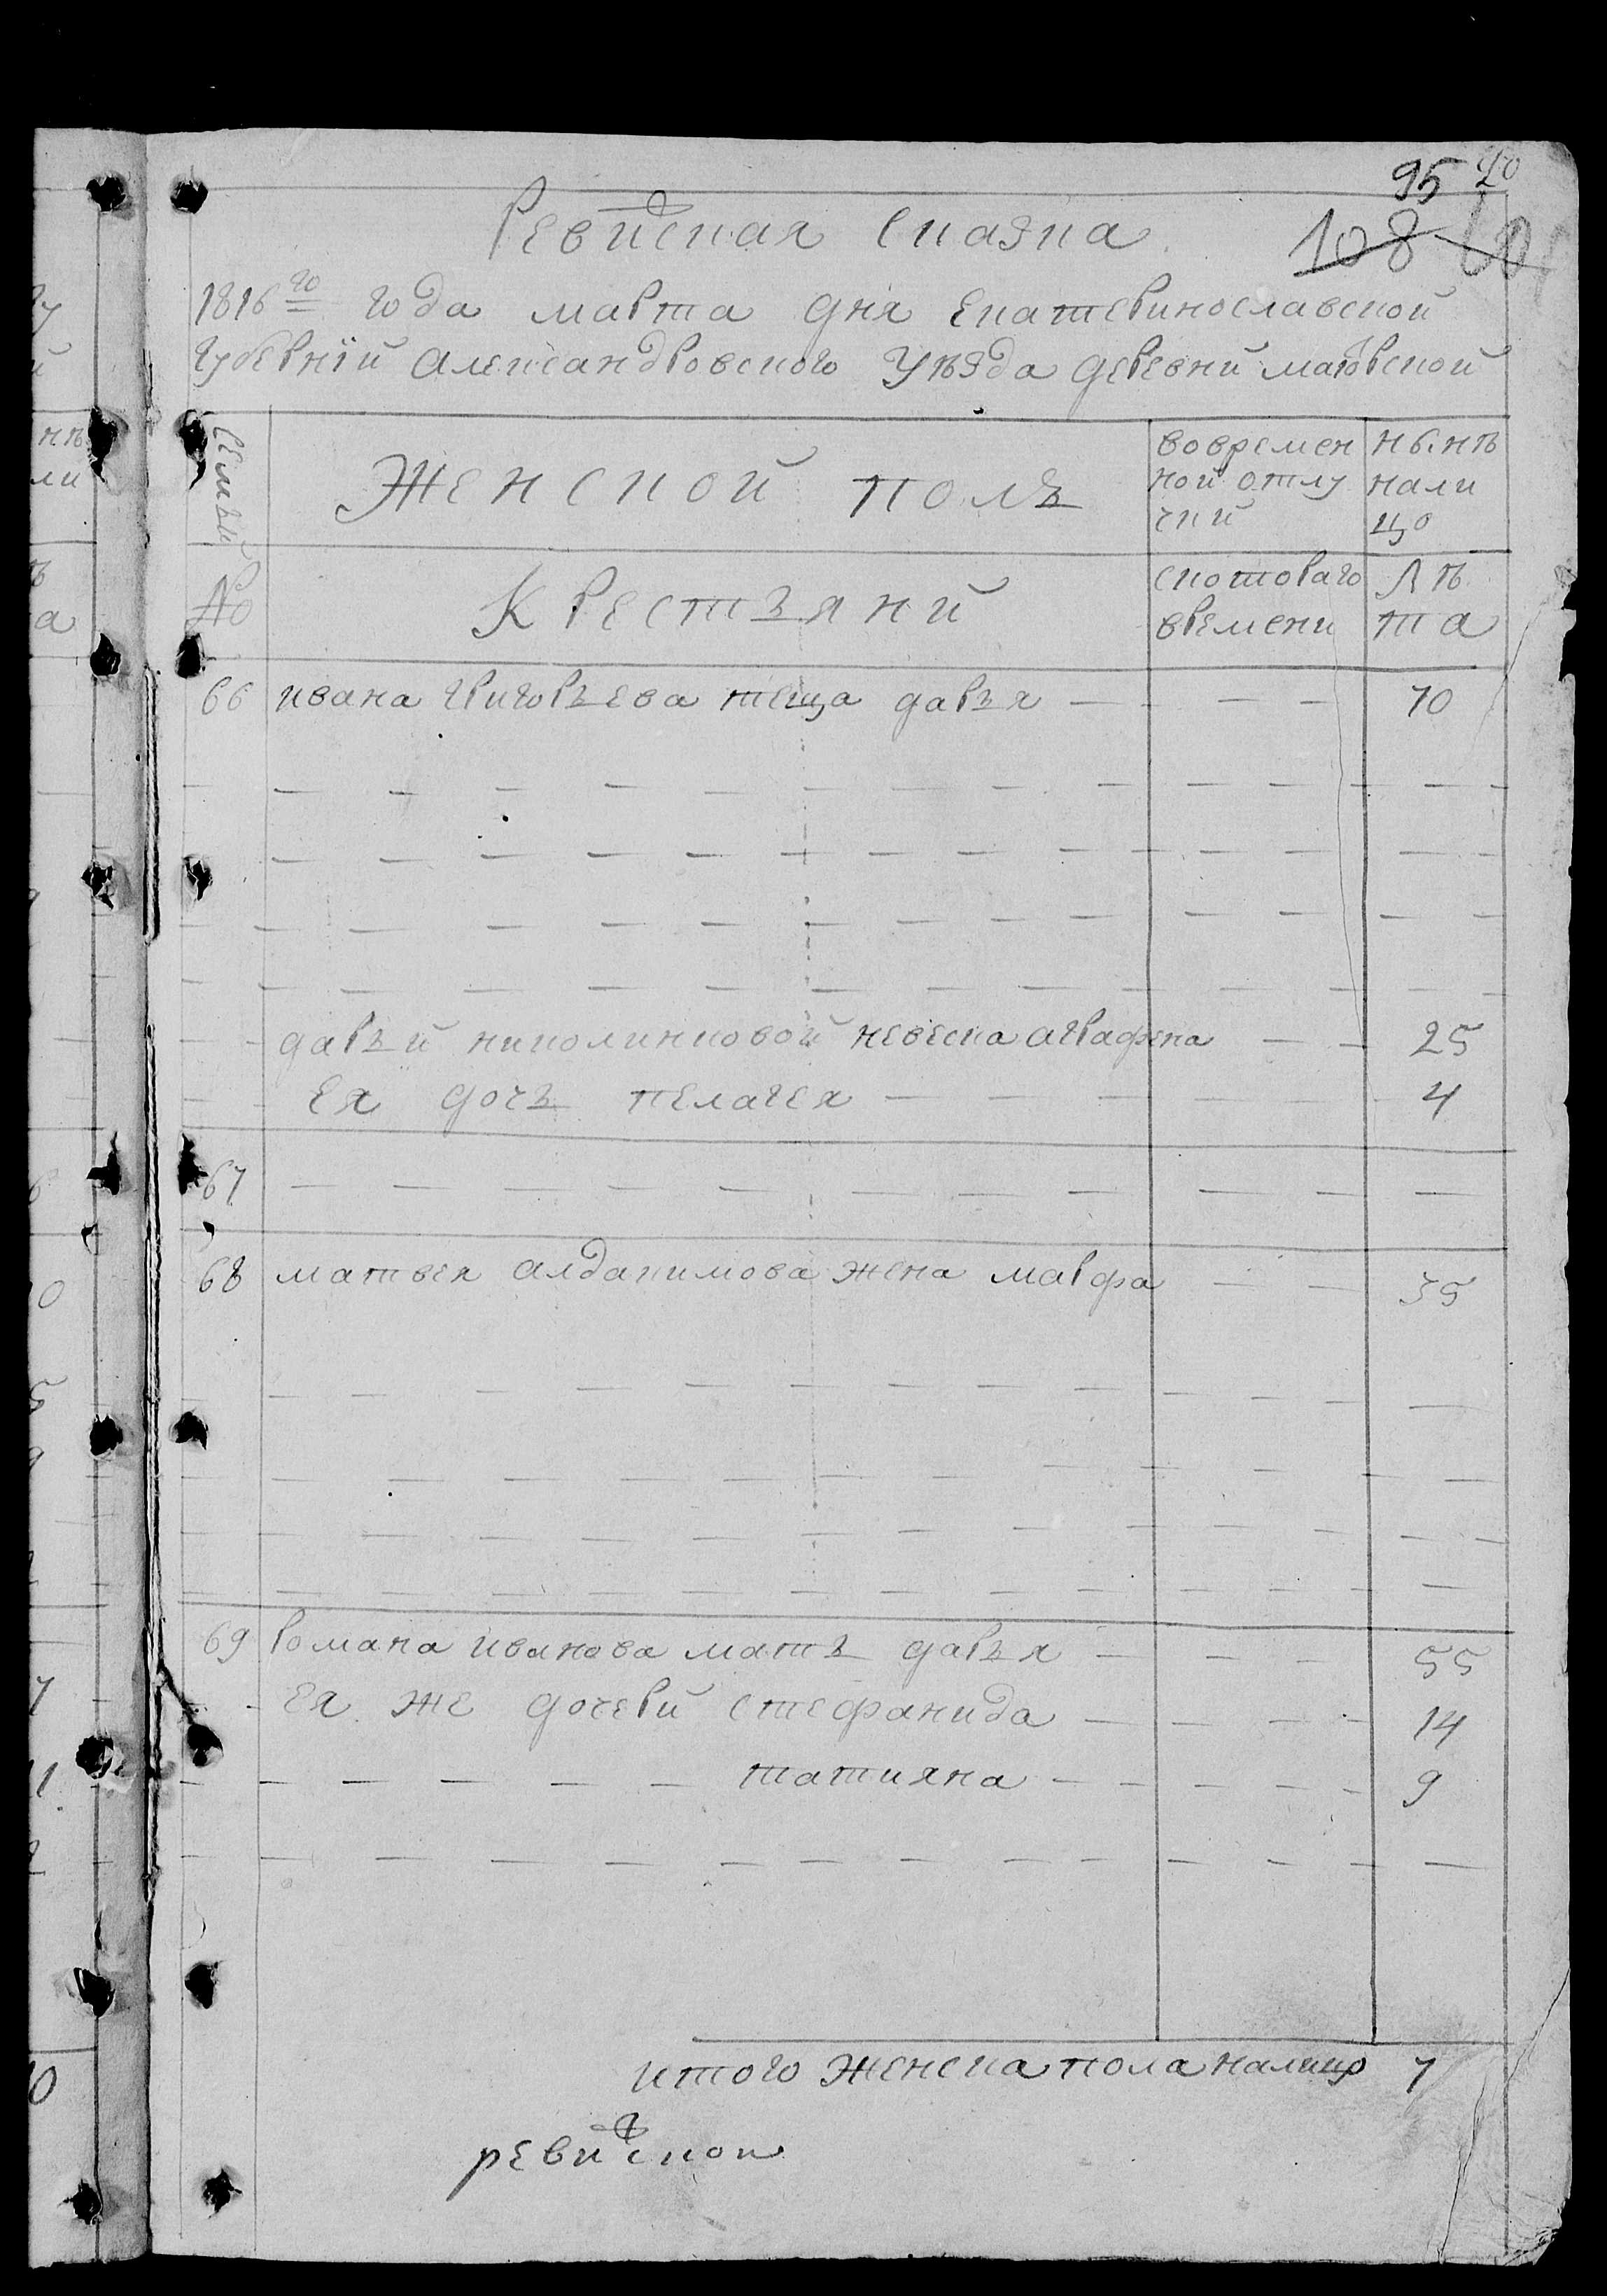 95 90
Ревиская Сказка 108
1816го года марта дня Екатеринославской
Губернїй Александровского Уѣзда деревни
Семьи
Женской полъ
вовремен
ной отлу
чки
нынѣ
нали
цо
№
Крестьяни
скотораго
времени
лѣ
та
66 ивана григорьева теща дарья — — — 70
дарьи николинковой невеска аграфена — — 25
Ея дочь пелагея — — — — — 4
67 — — — — — — — — — — —
68 матвея алдакимова жена марфа — — 35
69 Романа иванова мать дарья — — — 55
Ея же дочери стефанида — — — — 14
— — — — — татияна — — — — — 9
итого женска пола налицо 7
ревиской